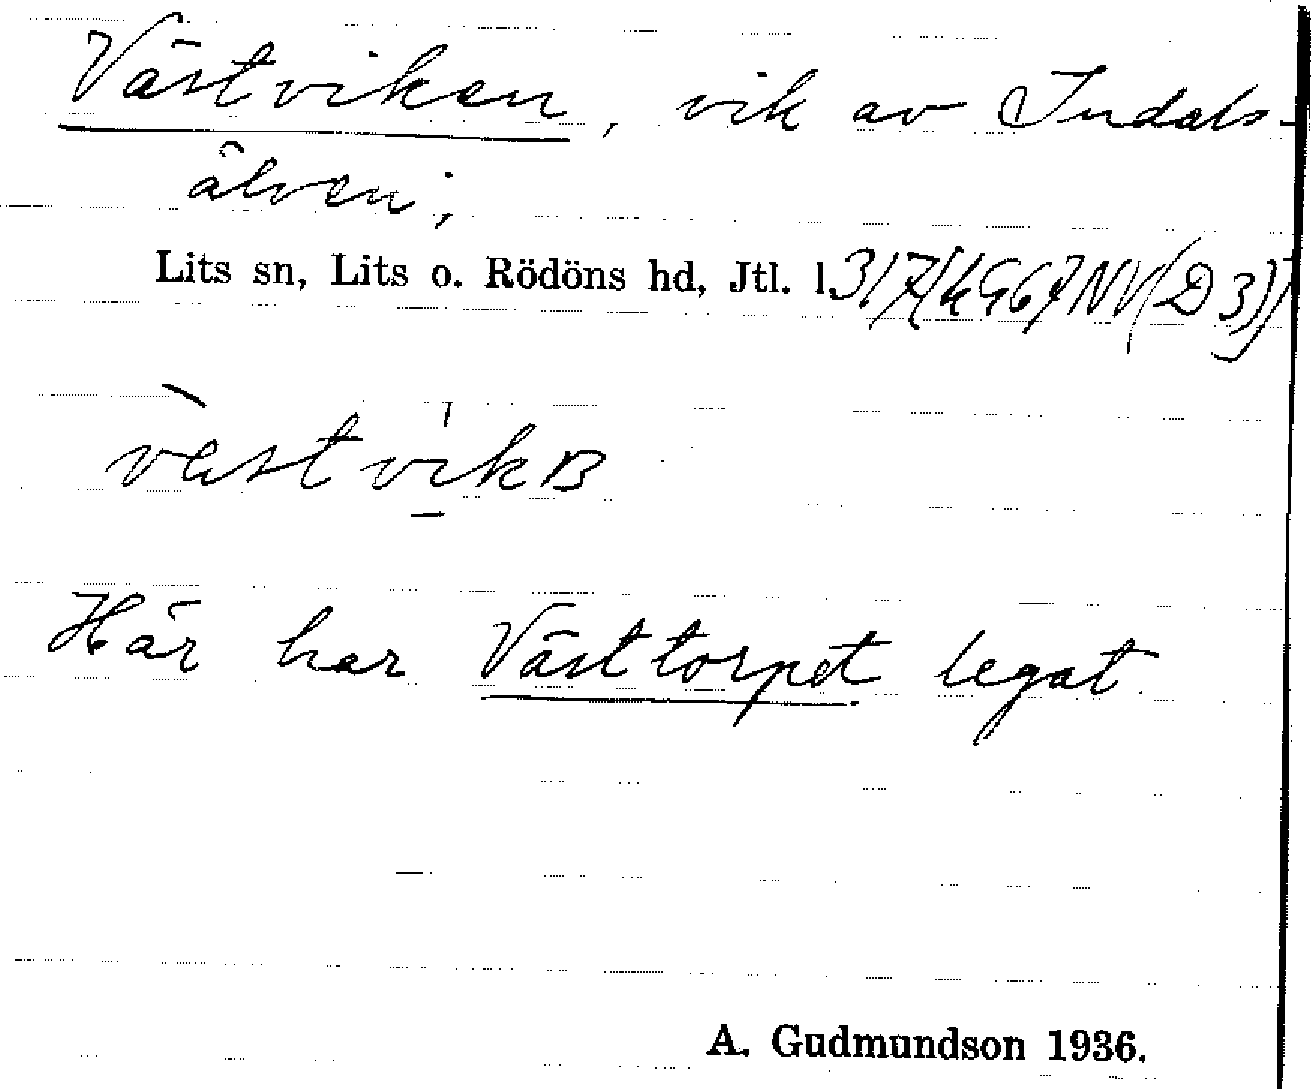 Västviken, vik av Indals-
älven;
Lits sn, Lits o. Rödöns hd, Jtl. l.
Här har Västtorpet legat
A. Gudmundson 1936.